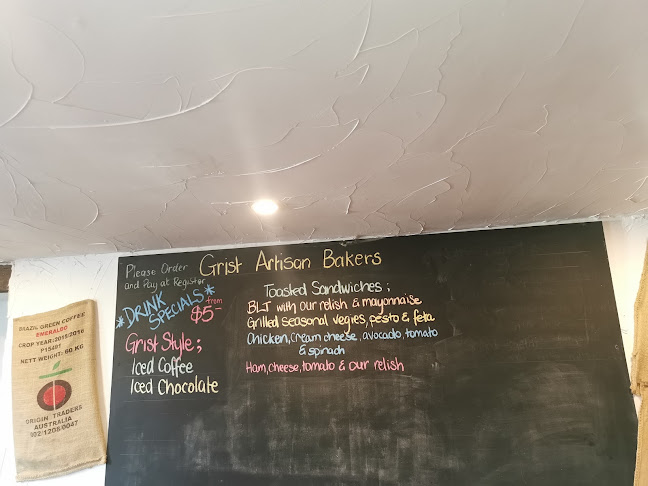 Please Order
and Pay at Register
Grist Artisan Bakers
*DRINK
SPECIALS*
from
$5-
Grist Style;
Iced Coffee
Iced Chocolate
Toasted Sandwiches;
BLT with our relish & mayonnaise
Grilled seasonal vegies, pesto & feta
Chicken, cream cheese, avocado, tomato
& spinach
Ham, cheese, tomato & our relish
BRAZIL GREEN COFFEE
EMERALDO
CROP YEAR:2015/2016
P15491
NETT WEIGHT: 60 KG
ORIGIN TRADERS
AUSTRALIA
002/1208/0047